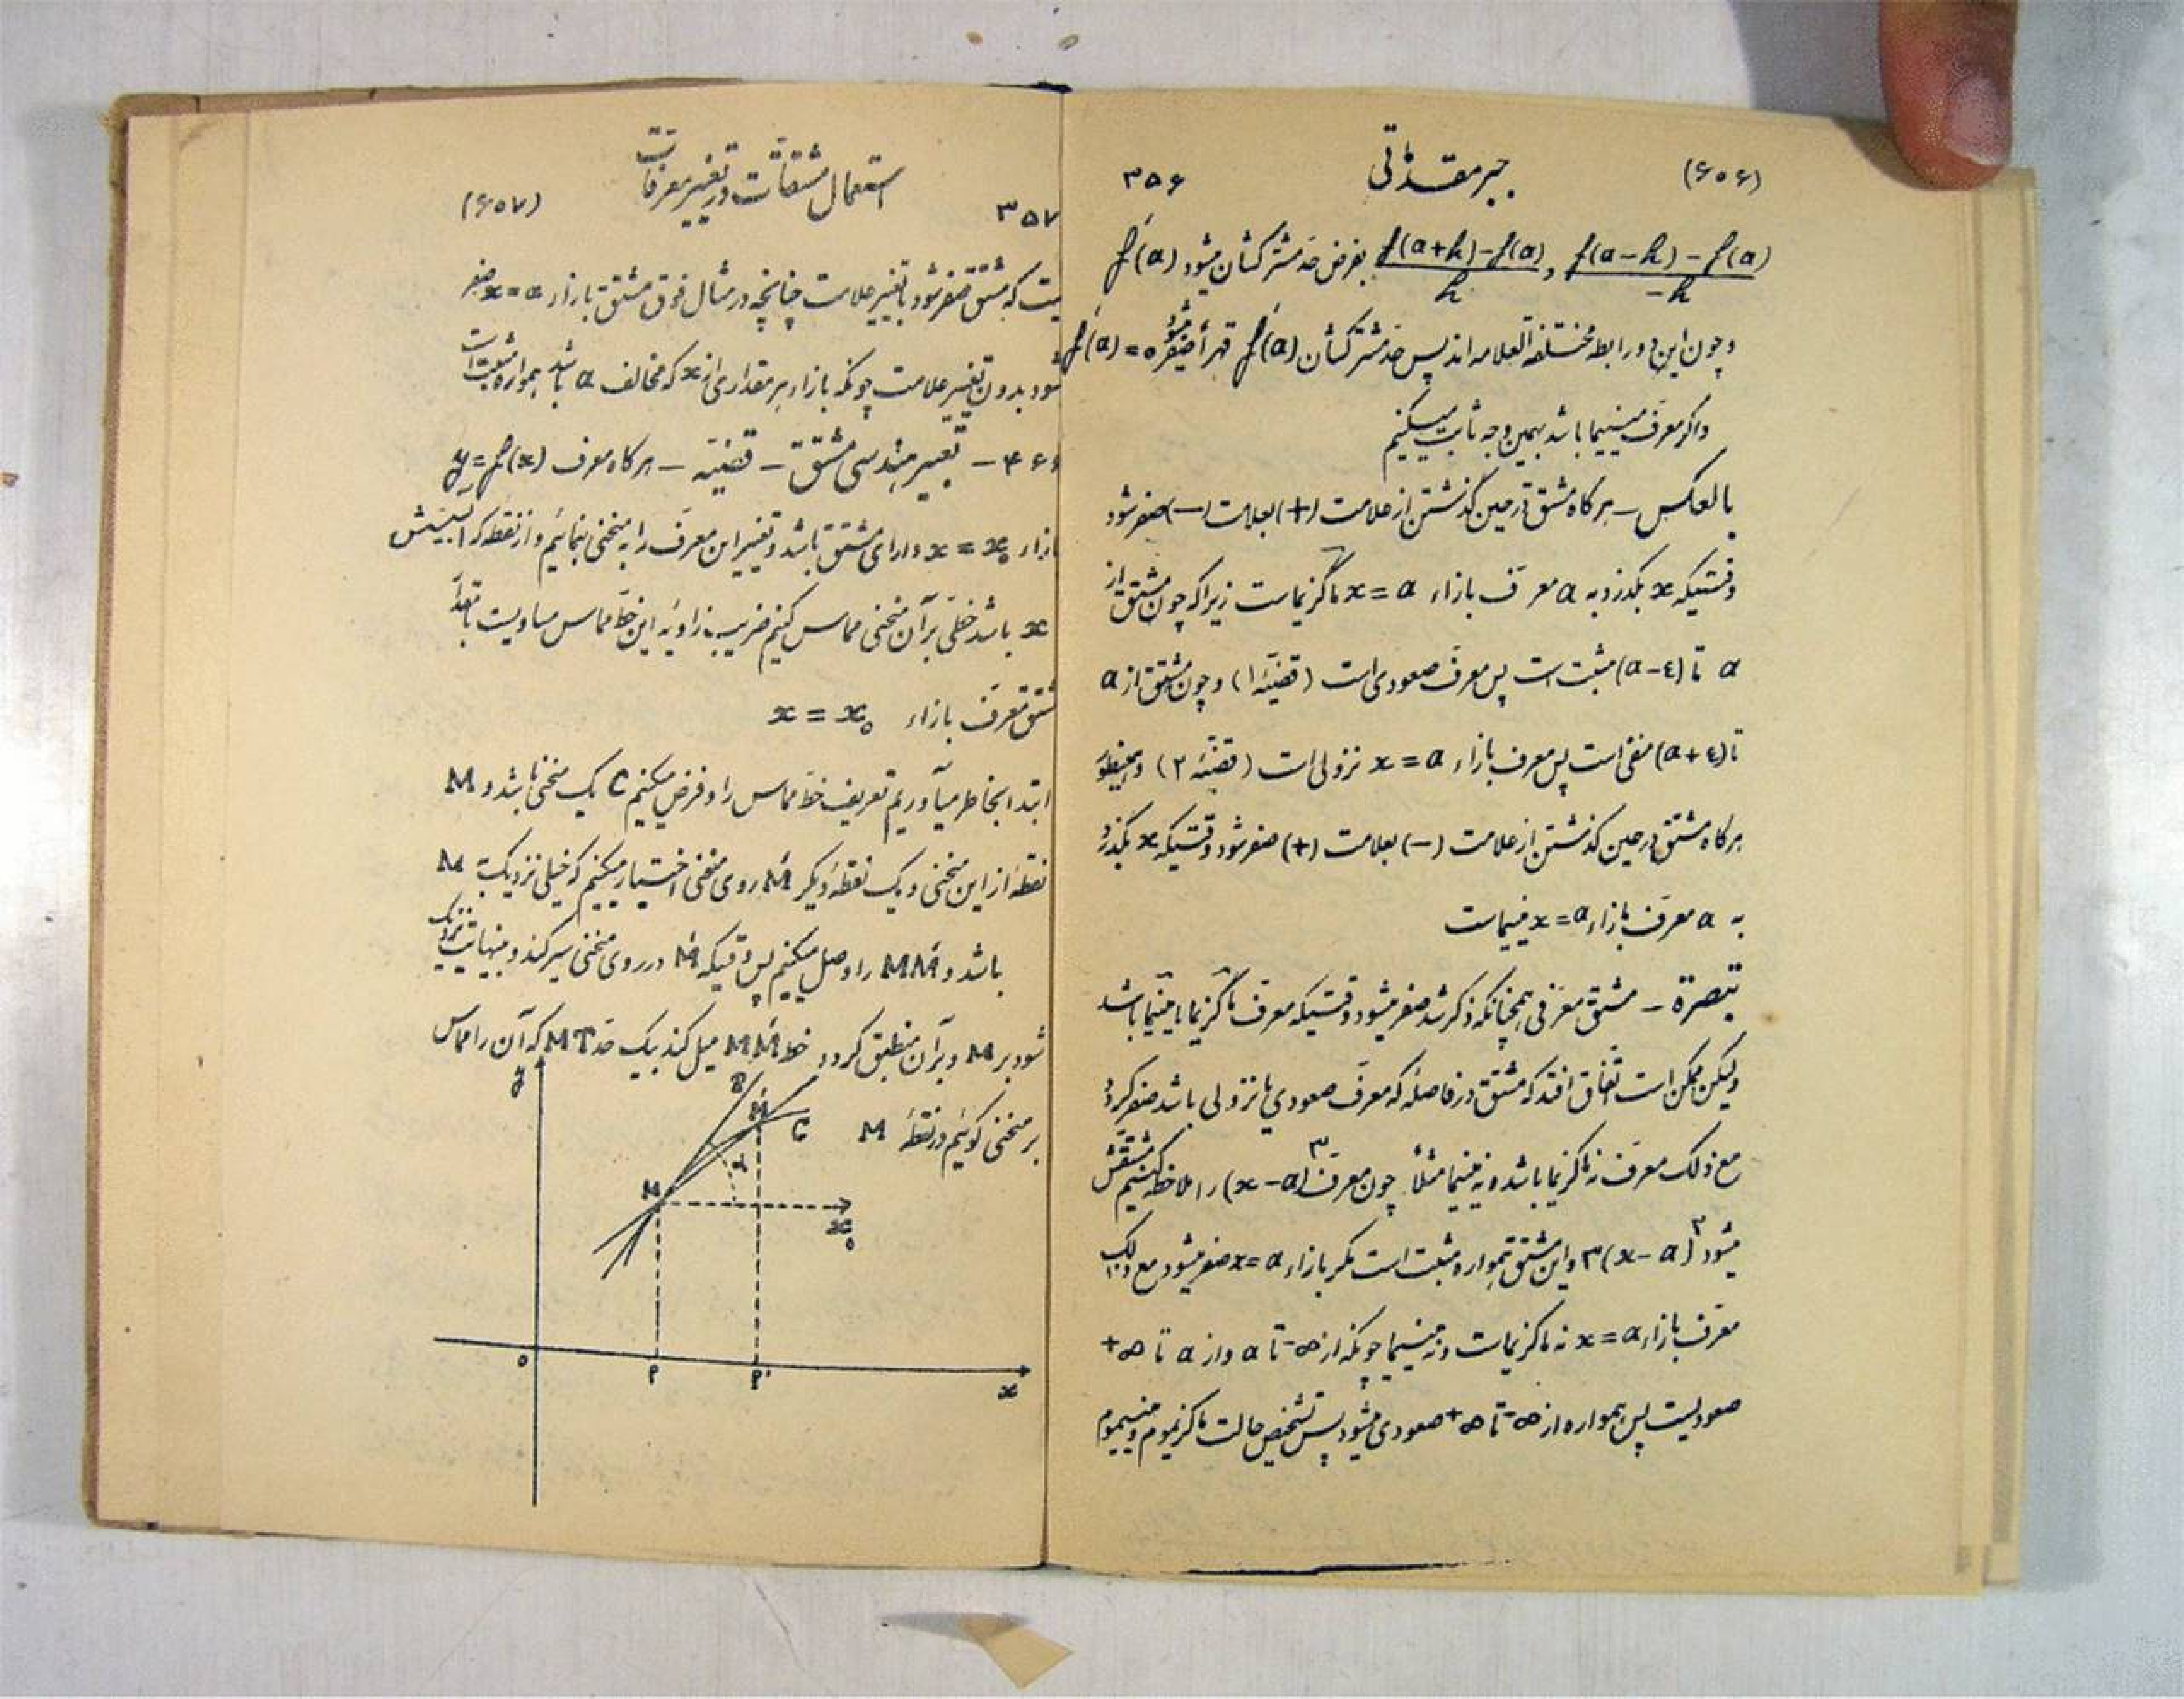 (۶۰۶) جبر مقدماتی ۳۵۶
f(a-h)-f(a)/-h , f(a+h)-f(a)/h بفرض حد مشترکشان میشود f′(a)
و چون این دو رابطه مختلفة العلامه اند پس حد مشترکشان f′(a) قهراً صفر میشود f′(a)=0
و اگر معرف مینیما باشد بهمین وجه ثابت میکنیم
بالعکس ــ هر گاه مشتق در حین گذشتن از علامت (+) بعلامت (−) صفر شود
وقتیکه x بگذرد به a معرف بازاء x = a ماگزیماست زیرا که چون مشتق از
a تا (a-ε) مثبت است پس معرف صعودی است (قضیهٔ ۱) و چون مشتق از a
تا (a+ε) منفی است پس معرف بازاء x = a نزولی است (قضیهٔ ۲) و همینطور
هر گاه مشتق در حین گذشتن از علامت (−) بعلامت (+) صفر شود وقتیکه x بگذرد
به a معرف بازاء x=a مینیماست
تبصرة ــ مشتق معرفی همچنانکه ذکر شد صفر میشود وقتیکه معرف ماگزیما یا مینیما باشد
ولیکن ممکن است اتفاق افتد که مشتق در فاصلهٔ که معرف صعودی یا نزولی باشد صفر گردد
مع ذلک معرف نه ماگزیما باشد و نه مینیما مثلاً چون معرف (x−a)³ را ملاحظه کنیم مشتقش
میشود ۳(x−a)² و این مشتق همواره مثبت است مگر بازاء x=a صفر میشود مع ذلک
معرف بازاء x=a نه ماگزیماست و نه مینیما چونکه از ∞- تا a و از a تا ∞+
صعودیست پس همواره از ∞- تا ∞+ صعودی میشود پس تشخیص حالت ماگزیموم و مینیموم
۳۵۷ استعمال مشتقات در تغییر معرفات (۶۰۷)
یست که مشتق صفر شود با تغییر علامت چنانچه در مثال فوق مشتق بازاء x=a صفر
شود بدون تغییر علامت چونکه بازاء هر مقداری از x که مخالف a باشد همواره مثبت است
۴۶۶ ـ تعبیر هندسی مشتق ـ قضیّه ـ هر گاه معرف y=f(x)
بازاء x = x₀ دارای مشتق باشد و تغییر این معرف را به منحنی بنمائیم و از نقطه که آبسیسش
x باشد خطی بر آن منحنی مماس کنیم ضریب زاویهٔ این خط مماس مساویست با مقدار
مشتق معرف بازاء x = x₀
ابتدا بخاطر میآوریم تعریف خط مماس را و فرض میکنیم C یک منحنی باشد و M
نقطهٔ از این منحنی و یک نقطهٔ دیگر M′ روی منحنی اختیار میکنیم که خیلی نزدیک به M
باشد و MM′ را وصل میکنیم پس وقتیکه M′ در روی منحنی سیر کند و بینهایت نزدیک
شود بر M و بر آن منطبق گردد خط MM′ میل کند بیک حد MT که آن را مماس
بر منحنی گوئیم در نقطهٔ M
y
M′
C
α
M
x₀
o
P
P′
x